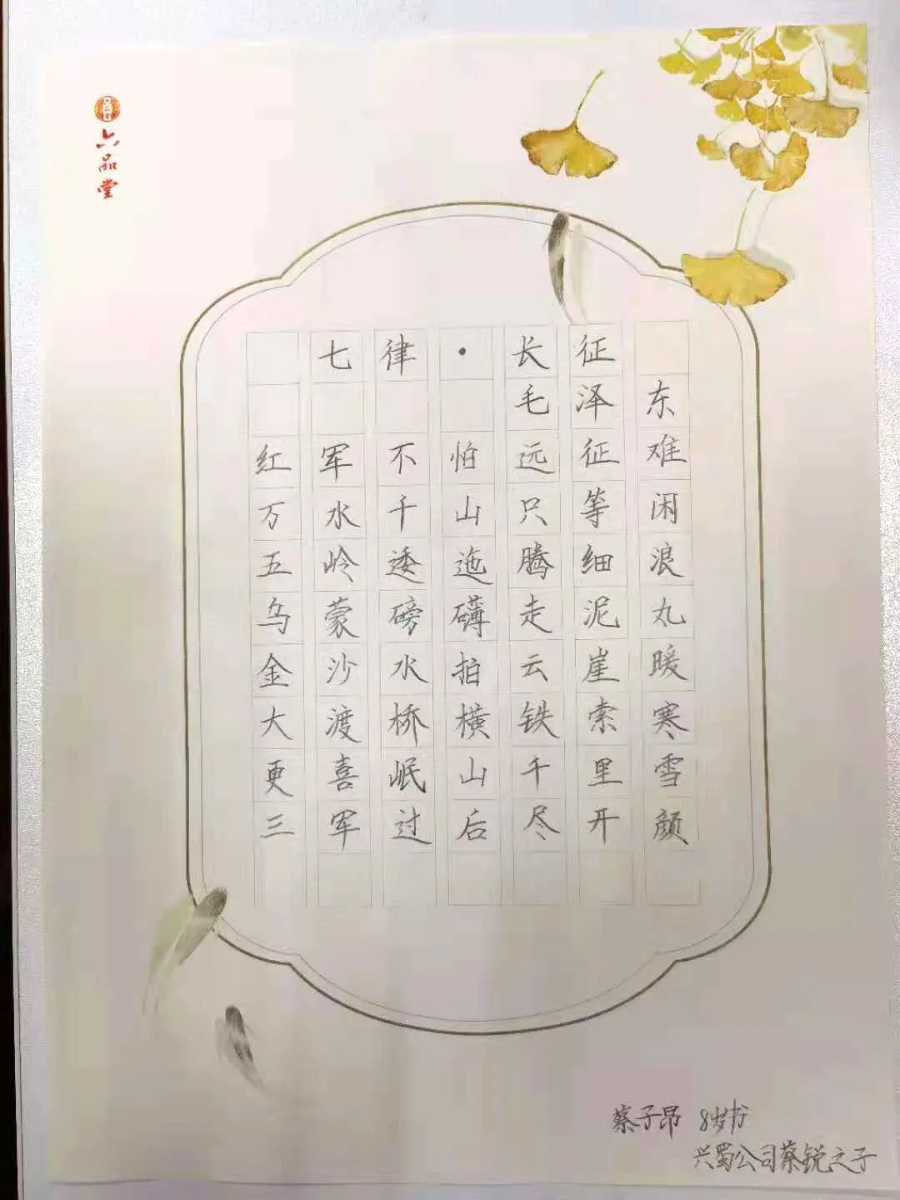 六品堂
七律·长征
毛泽东
红军不怕远征难
万水千山只等闲
五岭逶迤腾细浪
乌蒙磅礴走泥丸
金沙水拍云崖暖
大渡桥横铁索寒
更喜岷山千里雪
三军过后尽开颜
蔡子昂 8岁书
兴蜀公司蔡锐之子